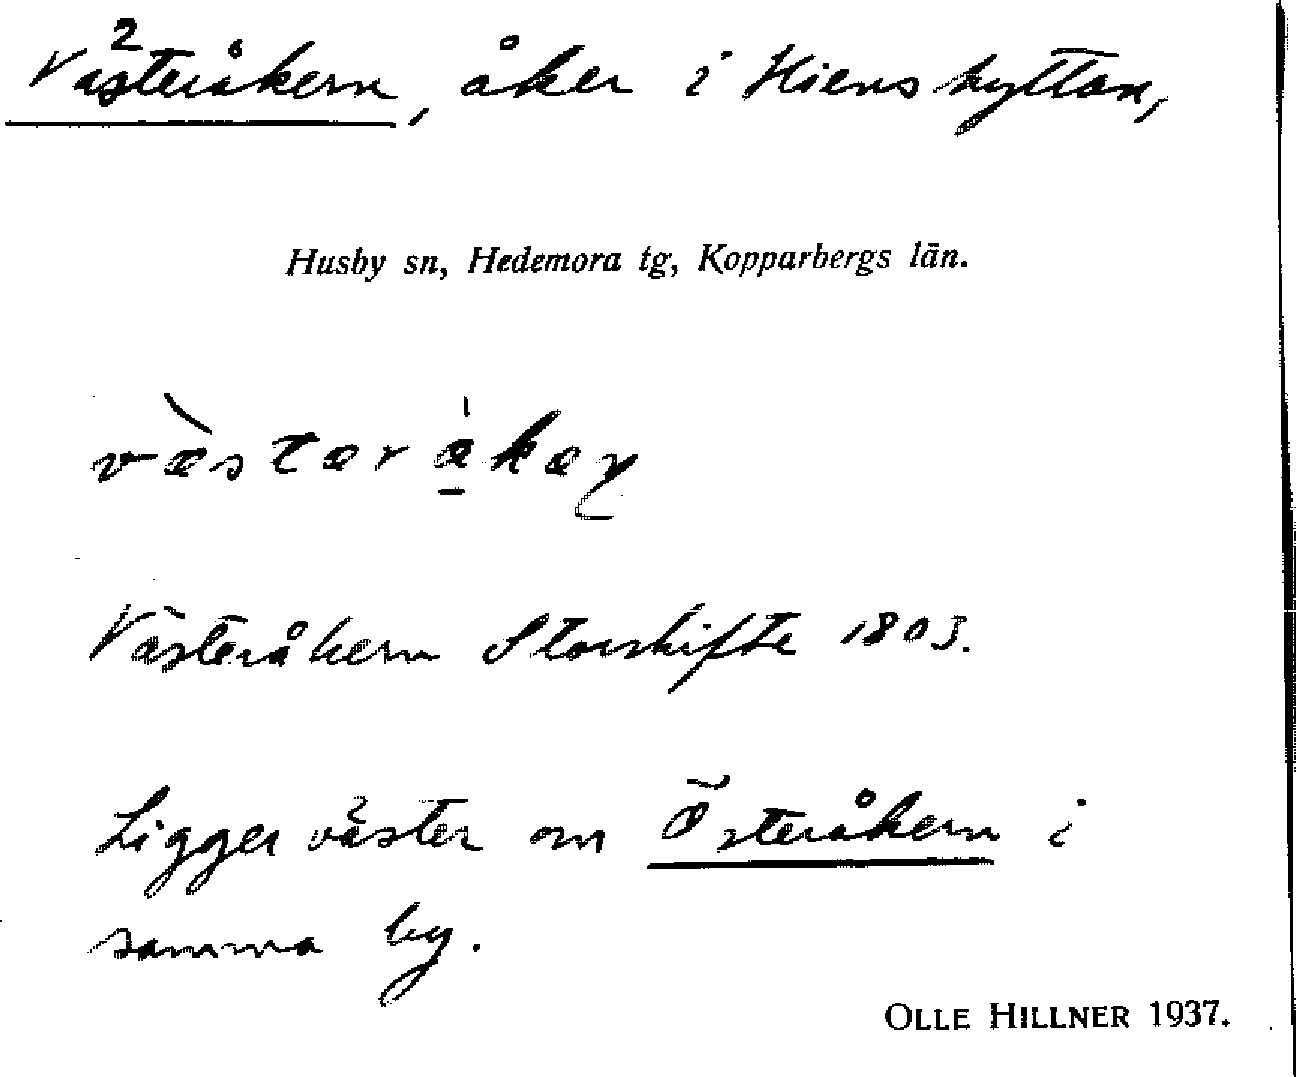 Västeråkern, åker i Hienshyttan,
Husby sn, Hedemora tg, Kopparbergs län.
væ̀stər å̍kəṇ
Västeråkern Storskifte 1803.
Ligger väster om Österåkern i
samma by.
OLLE HILLNER 1937.